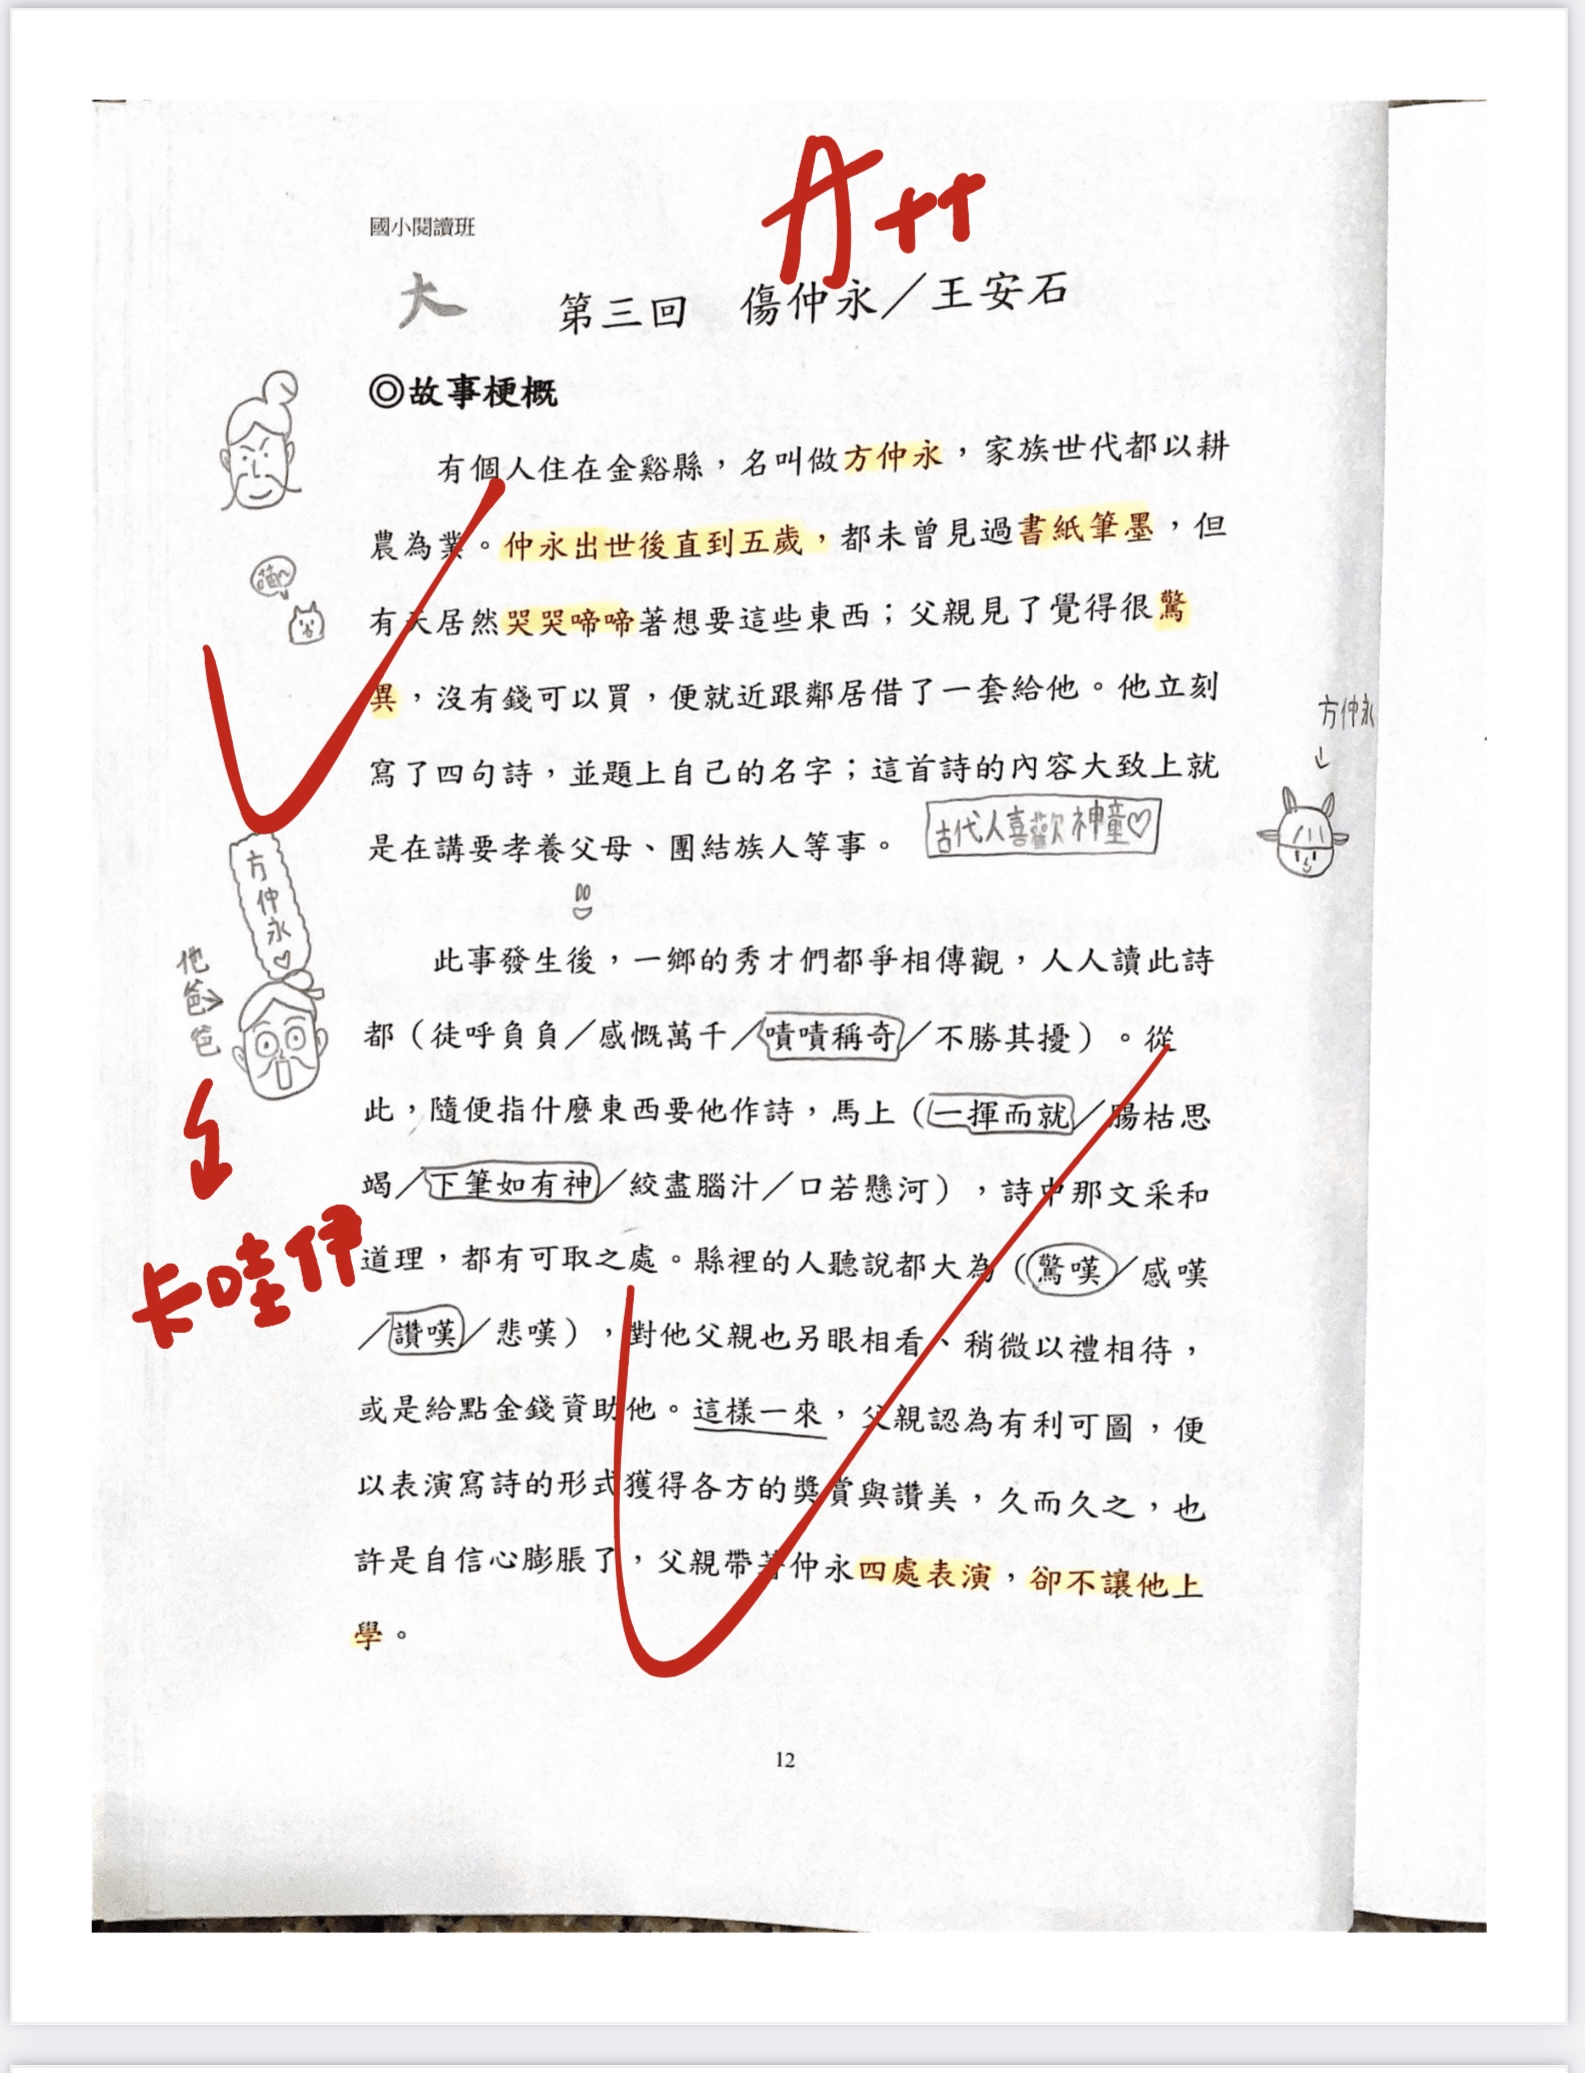 A++
國小閱讀班
大
第三回　傷仲永／王安石
◎故事梗概
有個人住在金谿縣，名叫做方仲永，家族世代都以耕
農為業。仲永出世後直到五歲，都未曾見過書紙筆墨，但
有天居然哭哭啼啼著想要這些東西；父親見了覺得很驚
喵~
異，沒有錢可以買，便就近跟鄰居借了一套給他。他立刻
方仲永
↓
寫了四句詩，並題上自己的名字；這首詩的內容大致上就
是在講要孝養父母、團結族人等事。
古代人喜歡神童♡
方仲永♡
他爸爸→
此事發生後，一鄉的秀才們都爭相傳觀，人人讀此詩
都（徒呼負負／感慨萬千／嘖嘖稱奇／不勝其擾）。從
此，隨便指什麼東西要他作詩，馬上（一揮而就／腸枯思
竭／下筆如有神／絞盡腦汁／口若懸河），詩中那文采和
卡哇伊
道理，都有可取之處。縣裡的人聽說都大為（驚嘆／感嘆
／讚嘆／悲嘆），對他父親也另眼相看、稍微以禮相待，
或是給點金錢資助他。這樣一來，父親認為有利可圖，便
以表演寫詩的形式獲得各方的獎賞與讚美，久而久之，也
許是自信心膨脹了，父親帶著仲永四處表演，卻不讓他上
學。
12